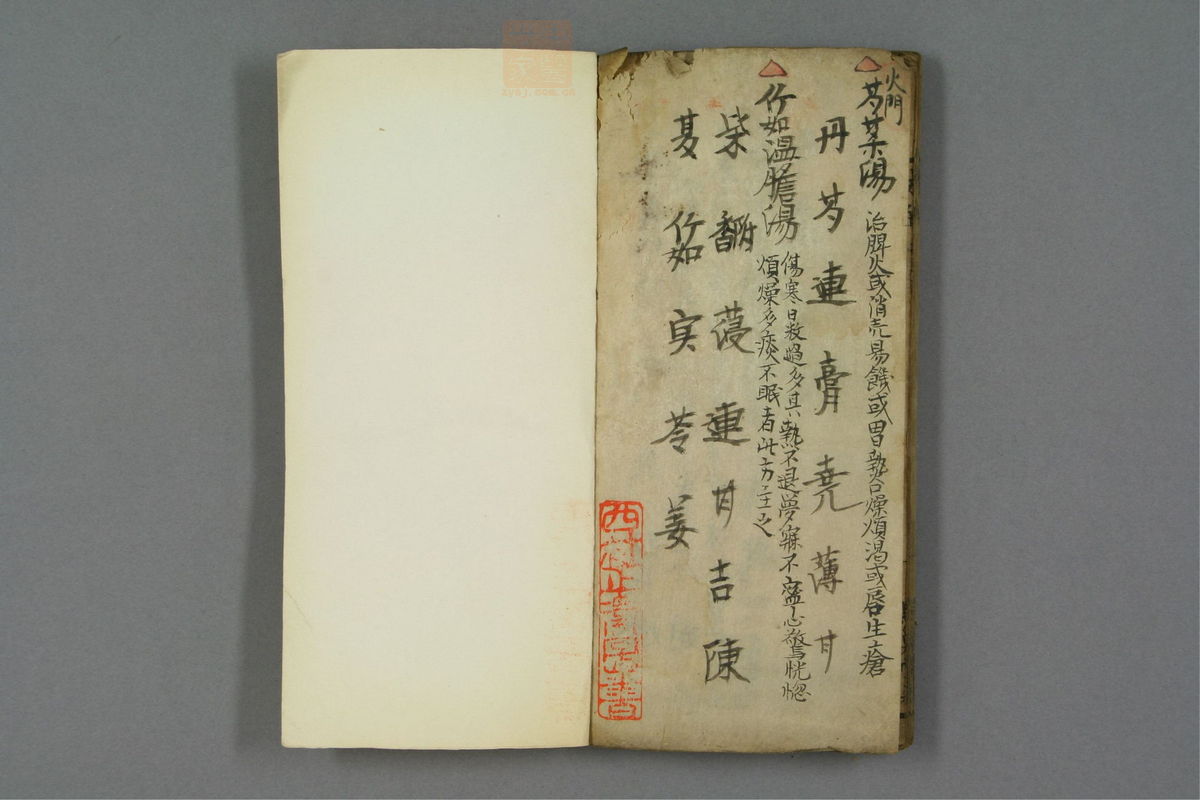 火門
芍薬湯 治脾火或消売易饑或胃熱口燥煩渇或唇生瘡
丹 芍 連 膏 堯 薄 甘
竹如温膽湯 傷寒日数過多其熱不退夢寐不寧心驚恍惚
煩燥多痰不眠者此方主之
柴 香附 葠 連 甘 吉 陳
夏 竹如 実 苓 姜
zysj.com.cn